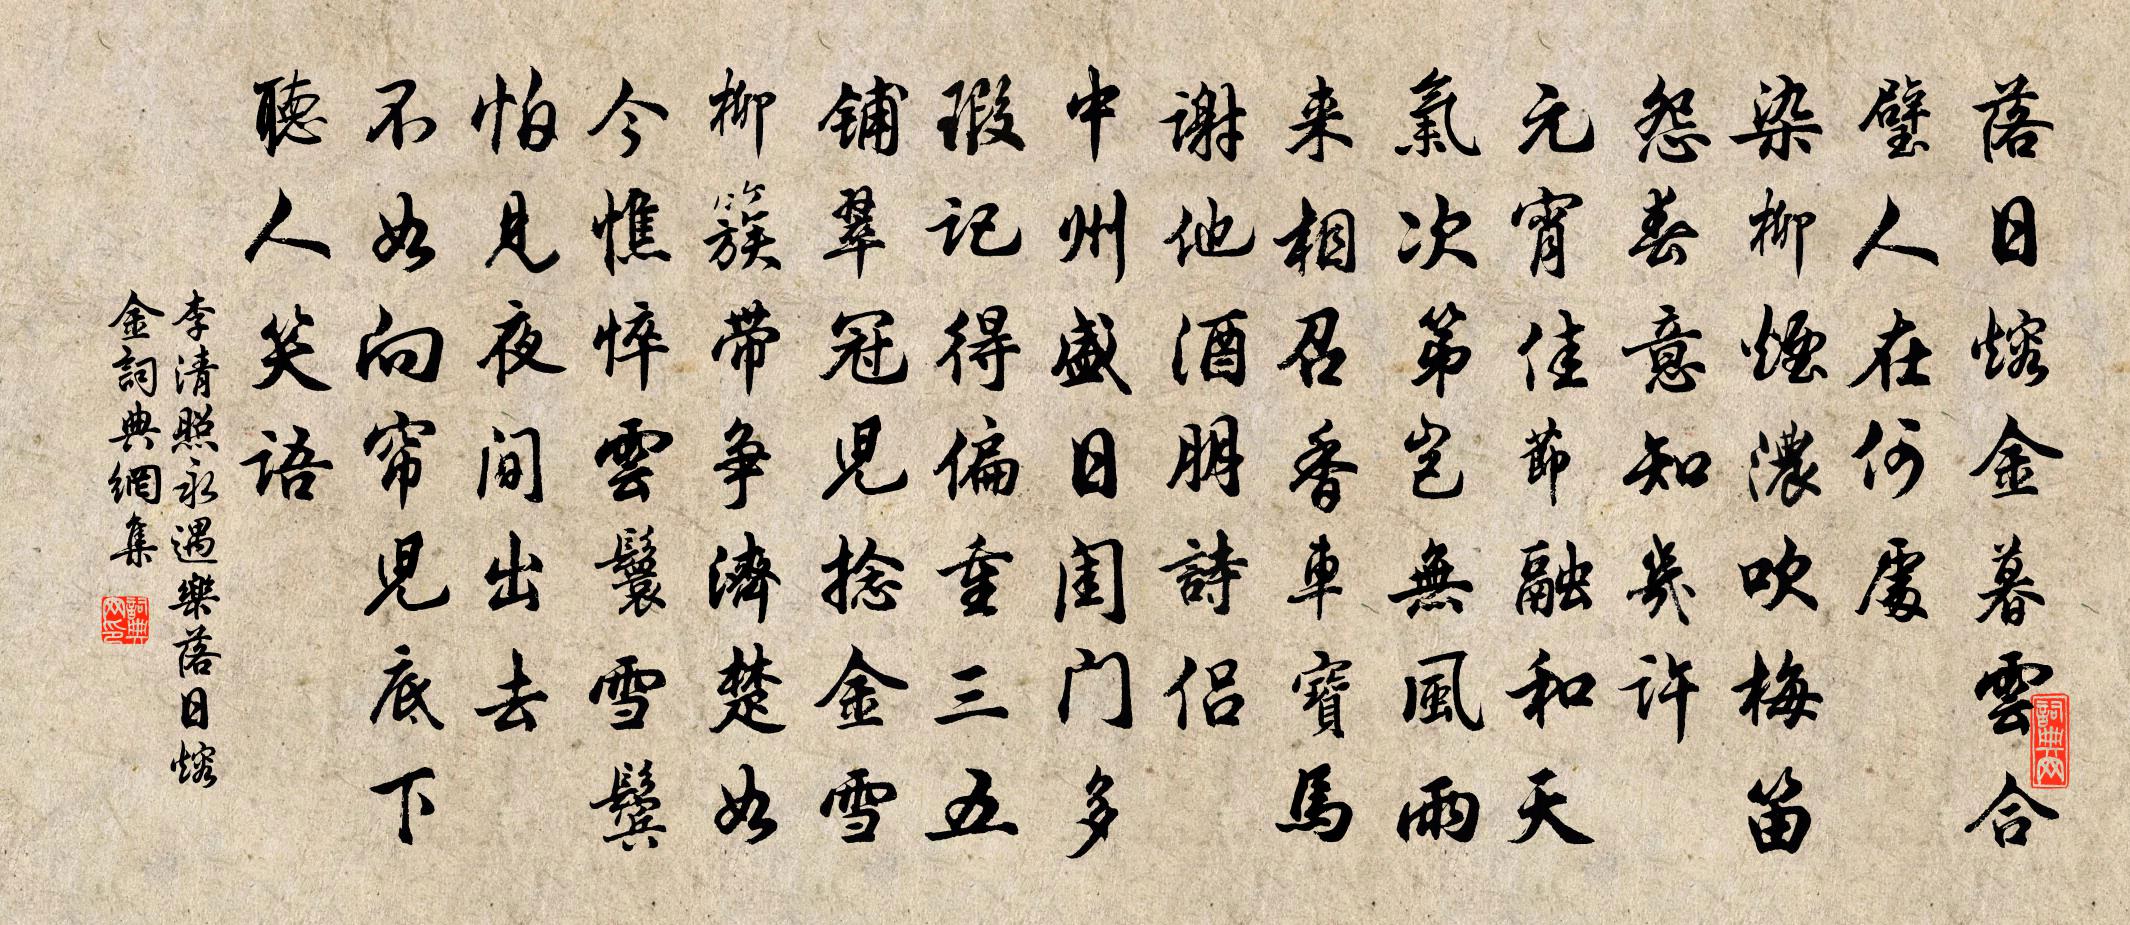 落日熔金暮雲合
璧人在何處
染柳煙濃吹梅笛
怨春意知幾許
元宵佳節融和天
氣次第豈無風雨
来相召香車寶馬
謝他酒朋詩侣
中州盛日闺门多
瑕记得偏重三五
铺翠冠児捻金雪
柳簇带争濟楚如
今憔悴雲鬟雪鬓
怕見夜间出去
不如向帘児底下
聽人笑语
李清照永遇樂落日熔
金詞典網集
詞典网
詞典网印